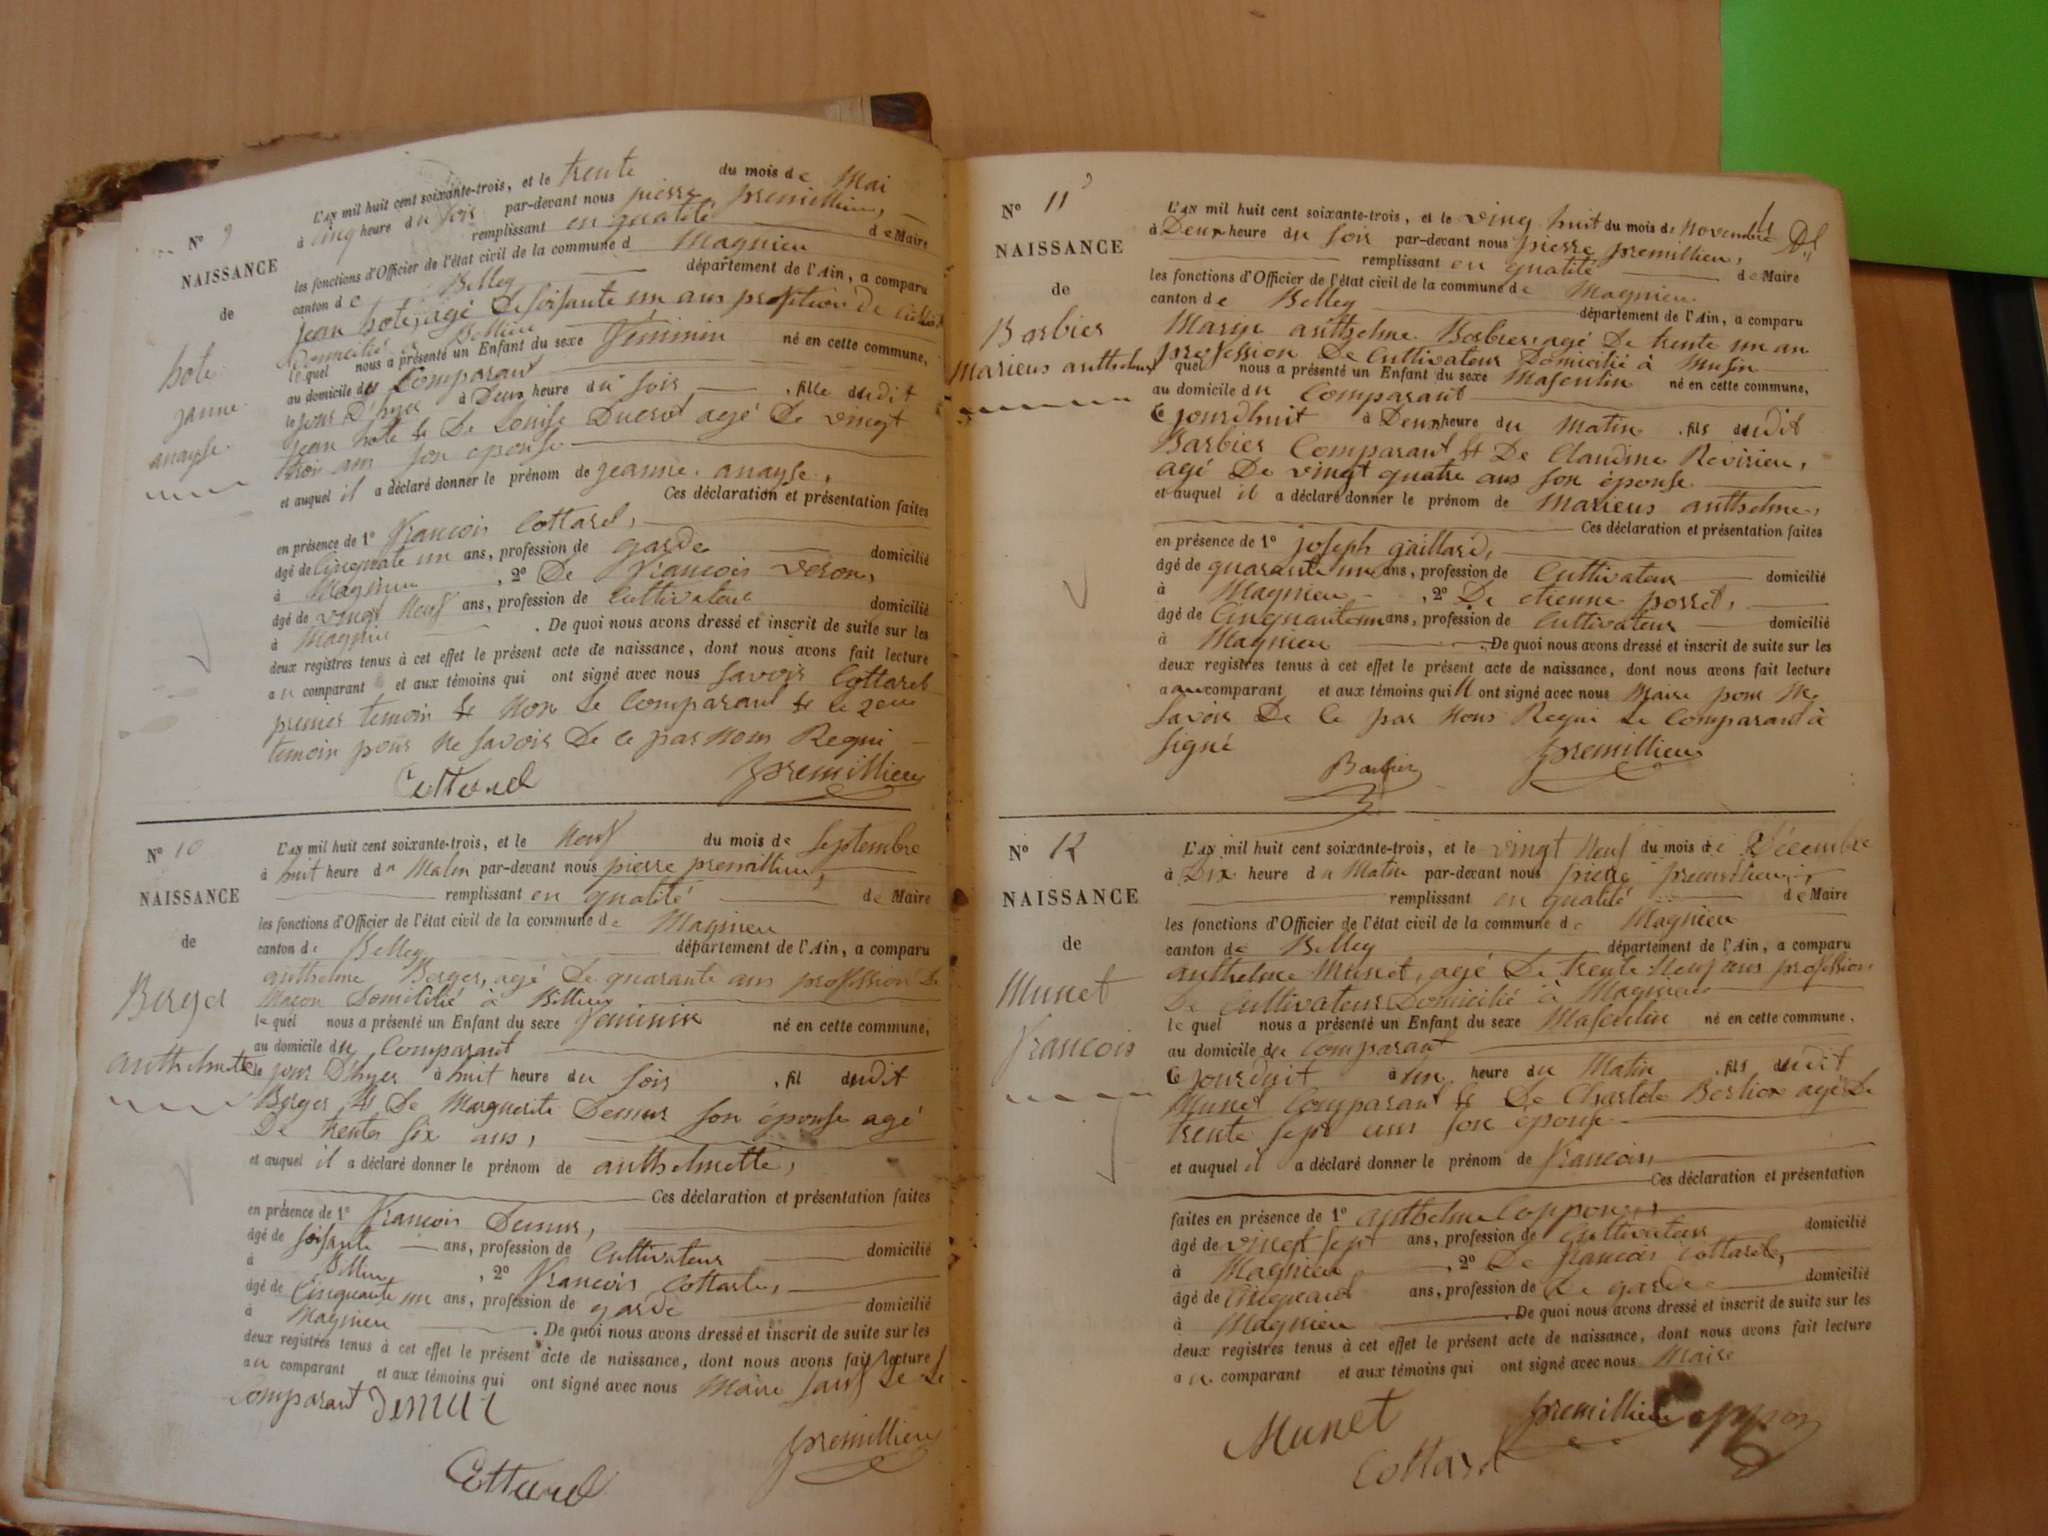 N° 9
NAISSANCE
de
hote
janne
anayse
L'AN mil huit cent soixante-trois, et le trente du mois de Mai
à cinq heure du soir par-devant nous pierre premillieu,
remplissant en qualité de Maire
les fonctions d'Officier de l'état civil de la commune d Magnieu
canton de Belley département de l'Ain, a comparu
jean hote, agé De soisante un ans profetion de
Domicilié à Billieu
le quel nous a présenté un Enfant du sexe féminin né en cette commune,
au domicile du Comparant
le jour D'hyer à Deux heure du soir , fille dudit
jean hote & De Louise Ducrot agé De vingt
troi ans son eponse
et auquel il a déclaré donner le prénom de jeanne anayse,
Ces déclaration et présentation faites
en présence de 1° françois Cottarel,
âgé de Cinquate un ans, profession de garde domicilié
à Magnieu , 2° De françois veron,
âgé de vingt Neuf ans, profession de Cultivateur domicilié
à Magnieu . De quoi nous avons dressé et inscrit de suite sur les
deux registres tenus à cet effet le présent acte de naissance, dont nous avons fait lecture
au comparant et aux témoins qui ont signé avec nous savoir Cottarel
premier temoin & Non le Comparant & le 2eme
temoin pour Ne savoir De ce par Nous Requi
Cottarel premillieu
N° 10
NAISSANCE
de
Berger
anthelmette
L'AN mil huit cent soixante-trois, et le Neuf du mois de Septembre
à huit heure du Matin par-devant nous pierre premillieu,
remplissant en qualité de Maire
les fonctions d'Officier de l'état civil de la commune de Magnieu
canton de Belley département de l'Ain, a comparu
anthelme Berger, agé De quarante ans profession De
Maçon Domicilié à Billieu
le quel nous a présenté un Enfant du sexe feminin né en cette commune,
au domicile du Comparant
le jour D'hyer à huit heure du soir , fil dudit
Berger & De Marguerite Demur son éponse agé
De trente six ans,
et auquel il a déclaré donner le prénom de anthelmette,
Ces déclaration et présentation faites
en présence de 1° françois Demur,
âgé de soisante ans, profession de Cultivateur domicilié
à Billieu , 2° françois Cottarel,
âgé de Cinquante un ans, profession de garde domicilié
à Magnieu . De quoi nous avons dressé et inscrit de suite sur les
deux registres tenus à cet effet le présent acte de naissance, dont nous avons fait lecture
au comparant et aux témoins qui ont signé avec nous Maire sauf
Comparant Demur
premillieu
Cottarel
N° 11
NAISSANCE
de
Barbier
Marieus anthelme
L'AN mil huit cent soixante-trois, et le vingt huit du mois de Novembre
à Deux heure du soir par-devant nous pierre premillieu,
remplissant en qualité de Maire
les fonctions d'Officier de l'état civil de la commune de Magnieu
canton de Belley département de l'Ain, a comparu
Marin anthelme Barbier, agé De trente un an
profession De Cultivateur Domicilié à Musin
quel nous a présenté un Enfant du sexe Masculin né en cette commune,
au domicile du Comparant
Ce jourdhuit à Deux heure du Matin , fils dudit
Barbier Comparant & De Claudine Revirieu,
agé De vingt quatre ans son éponse
et auquel il a déclaré donner le prénom de Marieus anthelme,
Ces déclaration et présentation faites
en présence de 1° joseph gaillard,
âgé de quarante un ans, profession de Cultivateur domicilié
à Magnieu , 2° De etienne porret,
âgé de Cinquante un ans, profession de Cultivateur domicilié
à Magnieu . De quoi nous avons dressé et inscrit de suite sur les
deux registres tenus à cet effet le présent acte de naissance, dont nous avons fait lecture
au comparant et aux témoins qui ont signé avec nous Maire pour Ne
savoir De ce par Nous Requi Le Comparant à
signé
Barbier premillieu
N° 12
NAISSANCE
de
Munet
françois
L'AN mil huit cent soixante-trois, et le vingt Neuf du mois de Décembre
à Dix heure du Matin par-devant nous pierre premillieu,
remplissant en qualité de Maire
les fonctions d'Officier de l'état civil de la commune de Magnieu
canton de Belley département de l'Ain, a comparu
anthelme Munet, agé De trente Neuf ans profession
De Cultivateur Domicilié à Magnieu
le quel nous a présenté un Enfant du sexe Masculin né en cette commune.
au domicile du Comparant
Ce jourduit à un heure du Matin , fils dudit
Munet Comparant & De Charlote Berlion agé De
trente sept ans son éponse
et auquel il a déclaré donner le prénom de françois,
Ces déclaration et présentation
faites en présence de 1° anthelme Coppon,
âgé de vingt sept ans, profession de Cultivateur domicilié
à Magnieu , 2° De françois Cottarel,
âgé de ans, profession de De garde domicilié
à Magnieu . De quoi nous avons dressé et inscrit de suite sur les
deux registres tenus à cet effet le présent acte de naissance, dont nous avons fait lecture
au comparant et aux témoins qui ont signé avec nous Maire
Munet premillieu Coppon
Cottarel